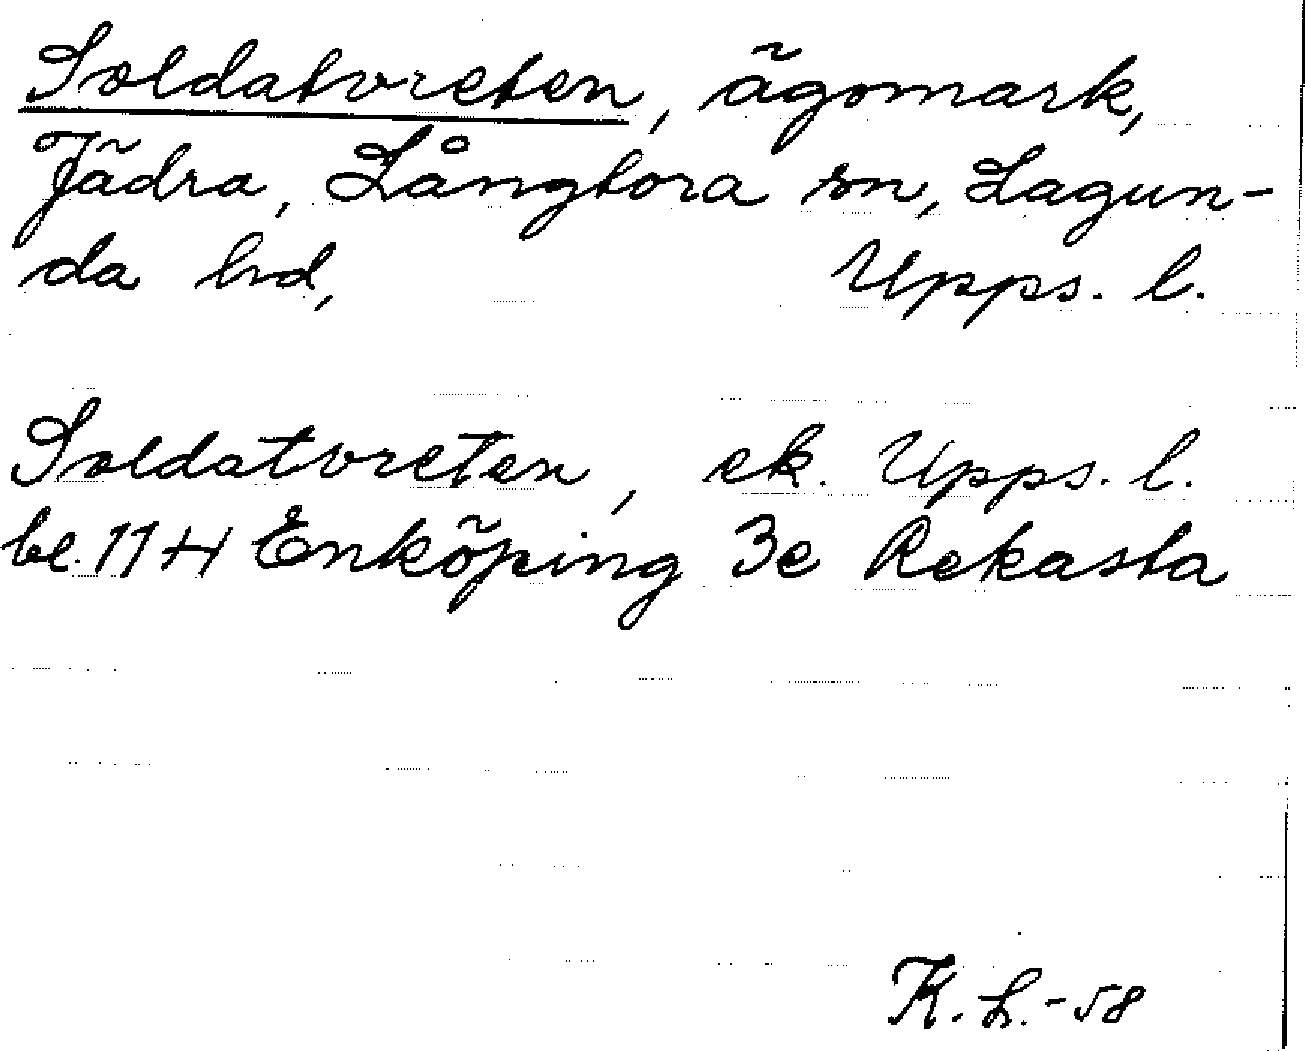 Soldatvreten, ägomark,
Jädra, Långtora sn, Lagun-
da hd, Upps. l.
Soldatvreten, ek. Upps. l.
bl. 11 H Enköping 3e Rekasta
K. L. -58